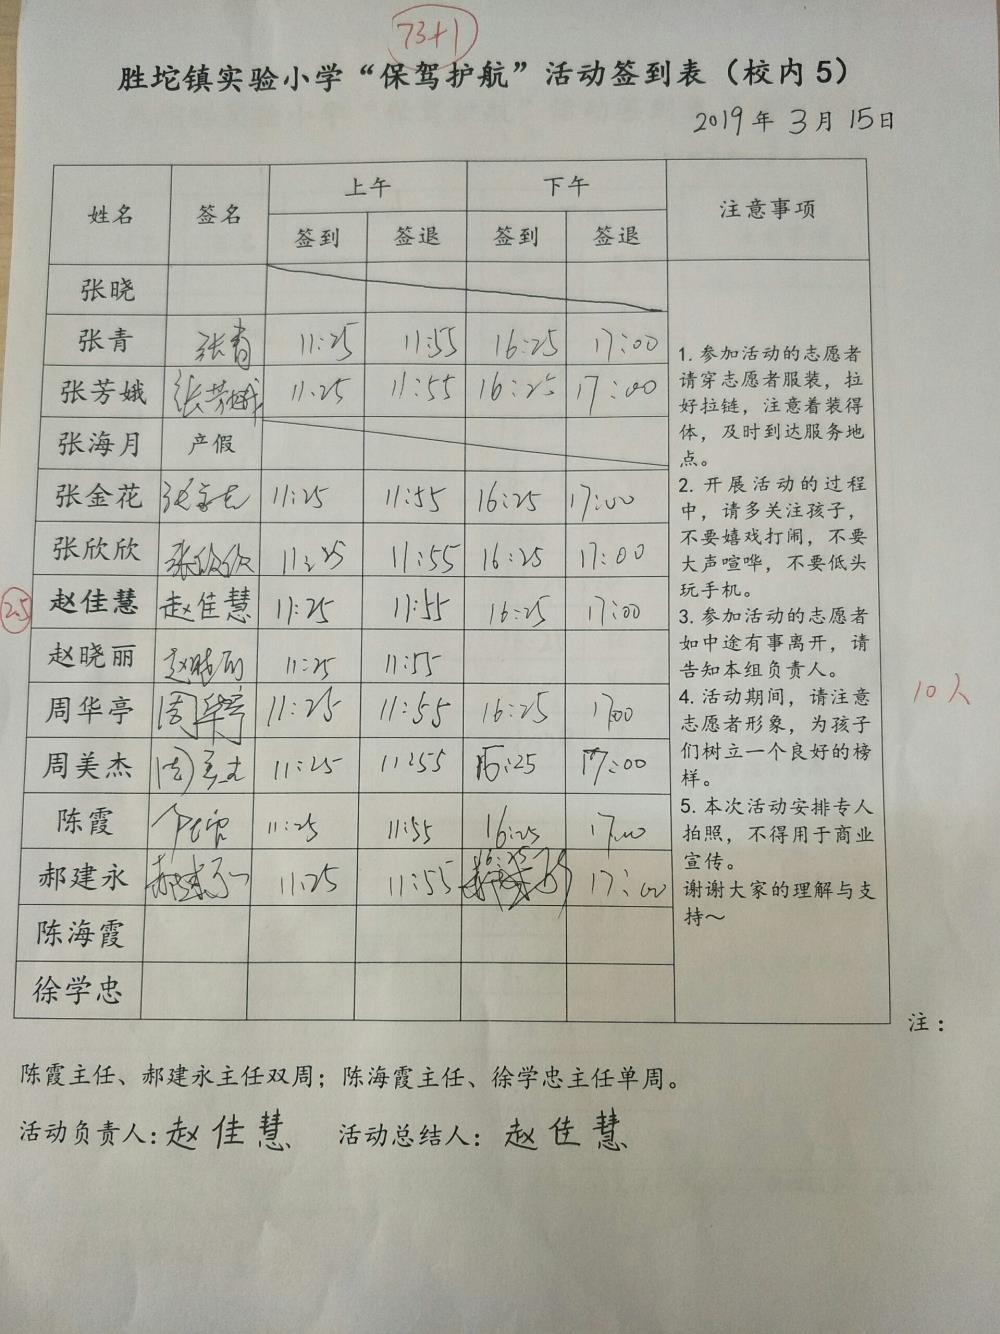 73+1
胜坨镇实验小学“保驾护航”活动签到表（校内5）
2019年 3月 15日
姓名 签名 上午 下午 注意事项
签到 签退 签到 签退
张晓
张青 张青 11:25 11:55 16:25 17:00
张芳娥 张芳娥 11:25 11:55 16:25 17:00
张海月 产假
张金花 张金花 11:25 11:55 16:25 17:00
张欣欣 张欣欣 11:25 11:55 16:25 17:00
25 赵佳慧 赵佳慧 11:25 11:55 16:25 17:00
赵晓丽 赵晓丽 11:25 11:55
周华亭 周华亭 11:25 11:55 16:25 1700
周美杰 周美杰 11:25 11:55 16:25 17:00
陈霞 陈霞 11:25 11:55 16:25 17:00
郝建永 郝建永 11:25 11:55 17:00
陈海霞
徐学忠
1. 参加活动的志愿者
请穿志愿者服装，拉
好拉链，注意着装得
体，及时到达服务地
点。
2. 开展活动的过程
中，请多关注孩子，
不要嬉戏打闹，不要
大声喧哗，不要低头
玩手机。
3. 参加活动的志愿者
如中途有事离开，请
告知本组负责人。
4. 活动期间，请注意
志愿者形象，为孩子
们树立一个良好的榜
样。
5. 本次活动安排专人
拍照，不得用于商业
宣传。
谢谢大家的理解与支
持～
10人
注：
陈霞主任、郝建永主任双周；陈海霞主任、徐学忠主任单周。
活动负责人：赵佳慧 活动总结人：赵佳慧